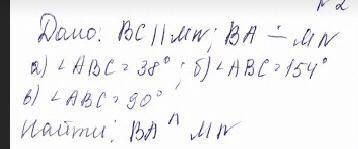 №2
Дано: BC || MN; BA ∸ MN
а) ∠ABC = 38°; б) ∠ABC = 154°
в) ∠ABC = 90°
Найти: BA ^ MN